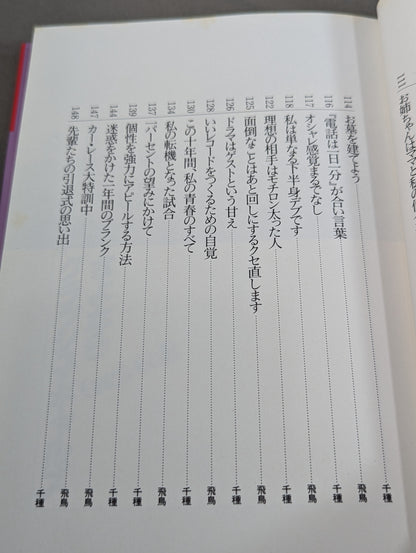 114 お墓を建てよう 千種
116 『電話は一日一分』が合い言葉 飛鳥
117 オシャレ感覚まるでなし 千種
118 私は単なる下半身デブです 千種
122 理想の相手はモチロン太った人 飛鳥
125 面倒なことはあと回しにするクセ直します 千種
126 ドラマはゲストという甘え 飛鳥
128 いいレコードをつくるための自覚 飛鳥
130 この十年間、私の青春のすべて 千種
134 私の転機となった試合 千種
137 一パーセントの望みにかけて 飛鳥
139 個性を強力にアピールする方法 千種
144 迷惑をかけた二年間のブランク 飛鳥
147 カー・レース大特訓中 飛鳥
148 先輩たちの引退式の思い出 千種